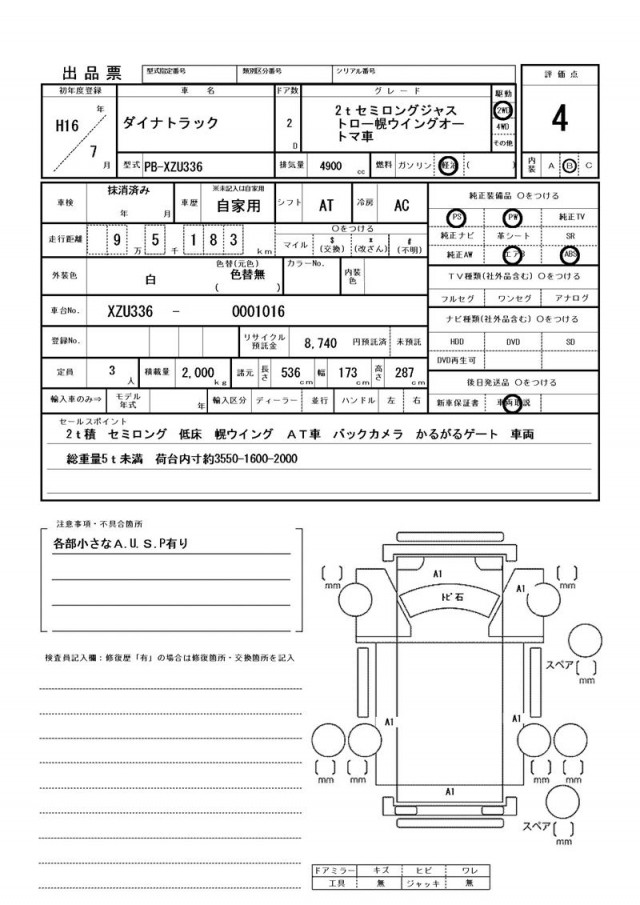 出品票 型式指定番号 類別区分番号 シリアル番号 評価点
初年度登録 車名 ドア数 グレード 駆動
H16 年 7 月 ダイナトラック 2 D 2tセミロングジャス 2WD 4
トロー幌ウイングオー 4WD
トマ車 その他
型式 PB-XZU336 排気量 4900 cc 燃料 ガソリン 軽油 ( ) 内装 A B C
車検 抹消済み 年 月 車歴 ※未記入は自家用 自家用 シフト AT 冷房 AC 純正装備品 〇をつける
走行距離 9 万 5 千 1 8 3 km 〇をつける マイル $ (交換) * (改ざん) # (不明) PS PW 純正TV
純正ナビ 革シート SR
外装色 白 色替(元色) 色替無 ( ) カラーNo. 内装色 純正AW エアB ABS
TV種類(社外品含む) 〇をつける
フルセグ ワンセグ アナログ
車台No. XZU336 - 0001016 ナビ種類(社外品含む) 〇をつける
登録No. リサイクル預託金 8,740 円預託済 未預託 HDD DVD SD
DVD再生可
定員 3 人 積載量 2,000 kg 諸元 長さ 536 cm 幅 173 cm 高さ 287 cm 後日発送品 〇をつける
輸入車のみ⇒ モデル年式 年 輸入区分 ディーラー 並行 ハンドル 左 右 新車保証書 車両取説
セールスポイント
2t積 セミロング 低床 幌ウイング AT車 バックカメラ かるがるゲート 車両
総重量5t未満 荷台内寸約3550-1600-2000
注意事項・不具合箇所
各部小さなA.U.S.P有り
検査員記入欄:修復歴「有」の場合は修復箇所・交換箇所を記入
A1
トビ石
A1
[ ] mm
[ ] mm
スペア [ ] mm
A1
A1
[ ] mm [ ] mm [ ] mm [ ] mm
A1
スペア [ ] mm
ドアミラー キズ ヒビ ワレ
工具 無 ジャッキ 無